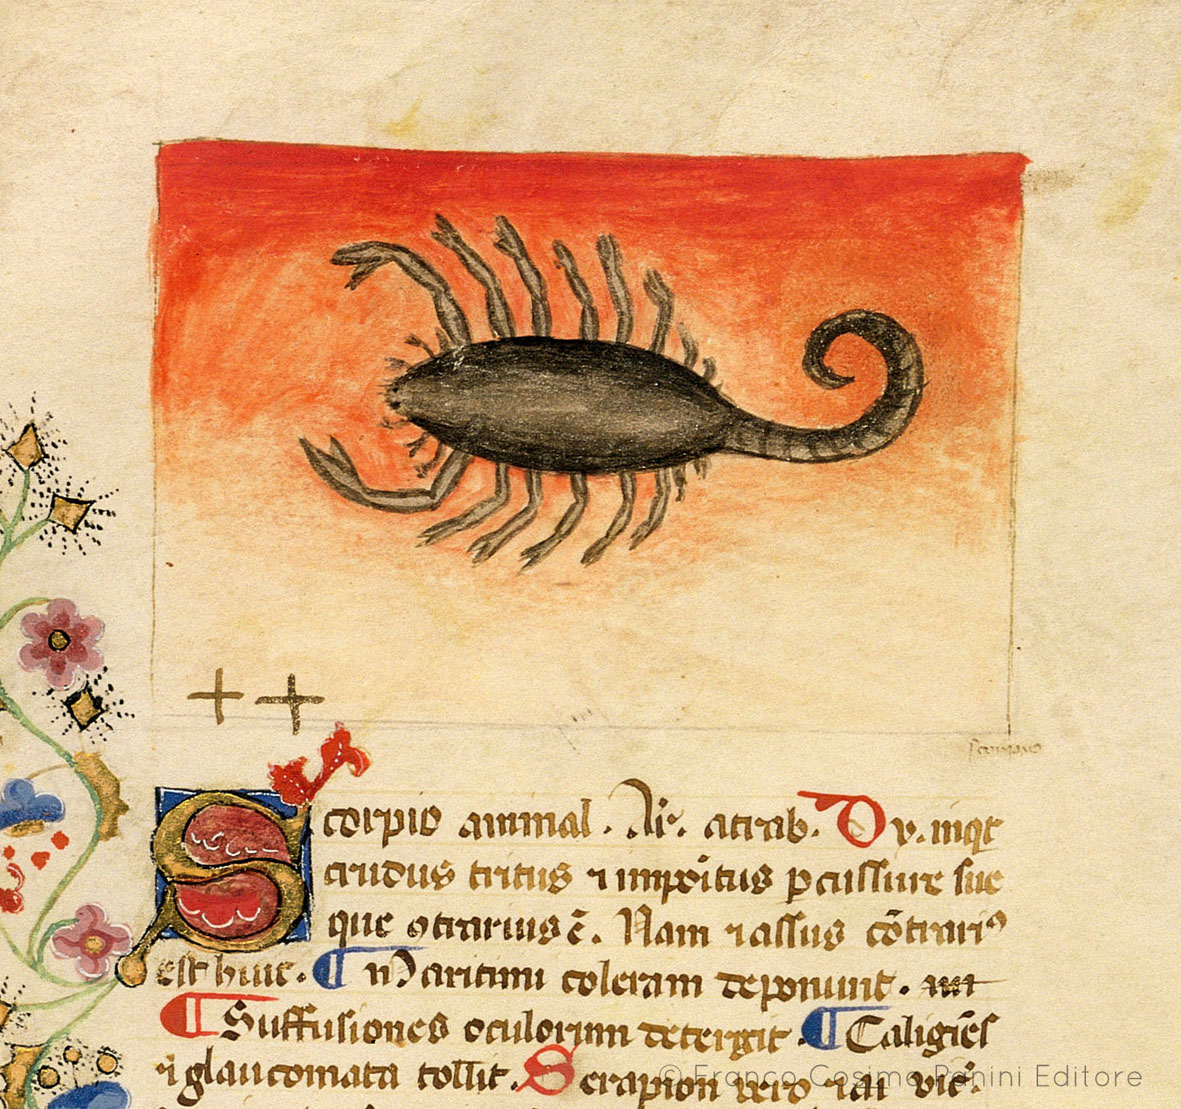 ++
Scorpio animal. Ar̄. atrab. Dy. inqͥt
crudus tritus ⁊ impoĩtus ꝑcussure sue
que ↄtrarius ē. Nam ⁊ assus cõtrariꝰ
est huic. ¶ Maritimi coleram deponunt.
¶ Suffusiones oculorum detergit. ¶ Caligĩes
⁊ glaucomata tollit. Serapion vero
© Franco Cosimo Panini Editore